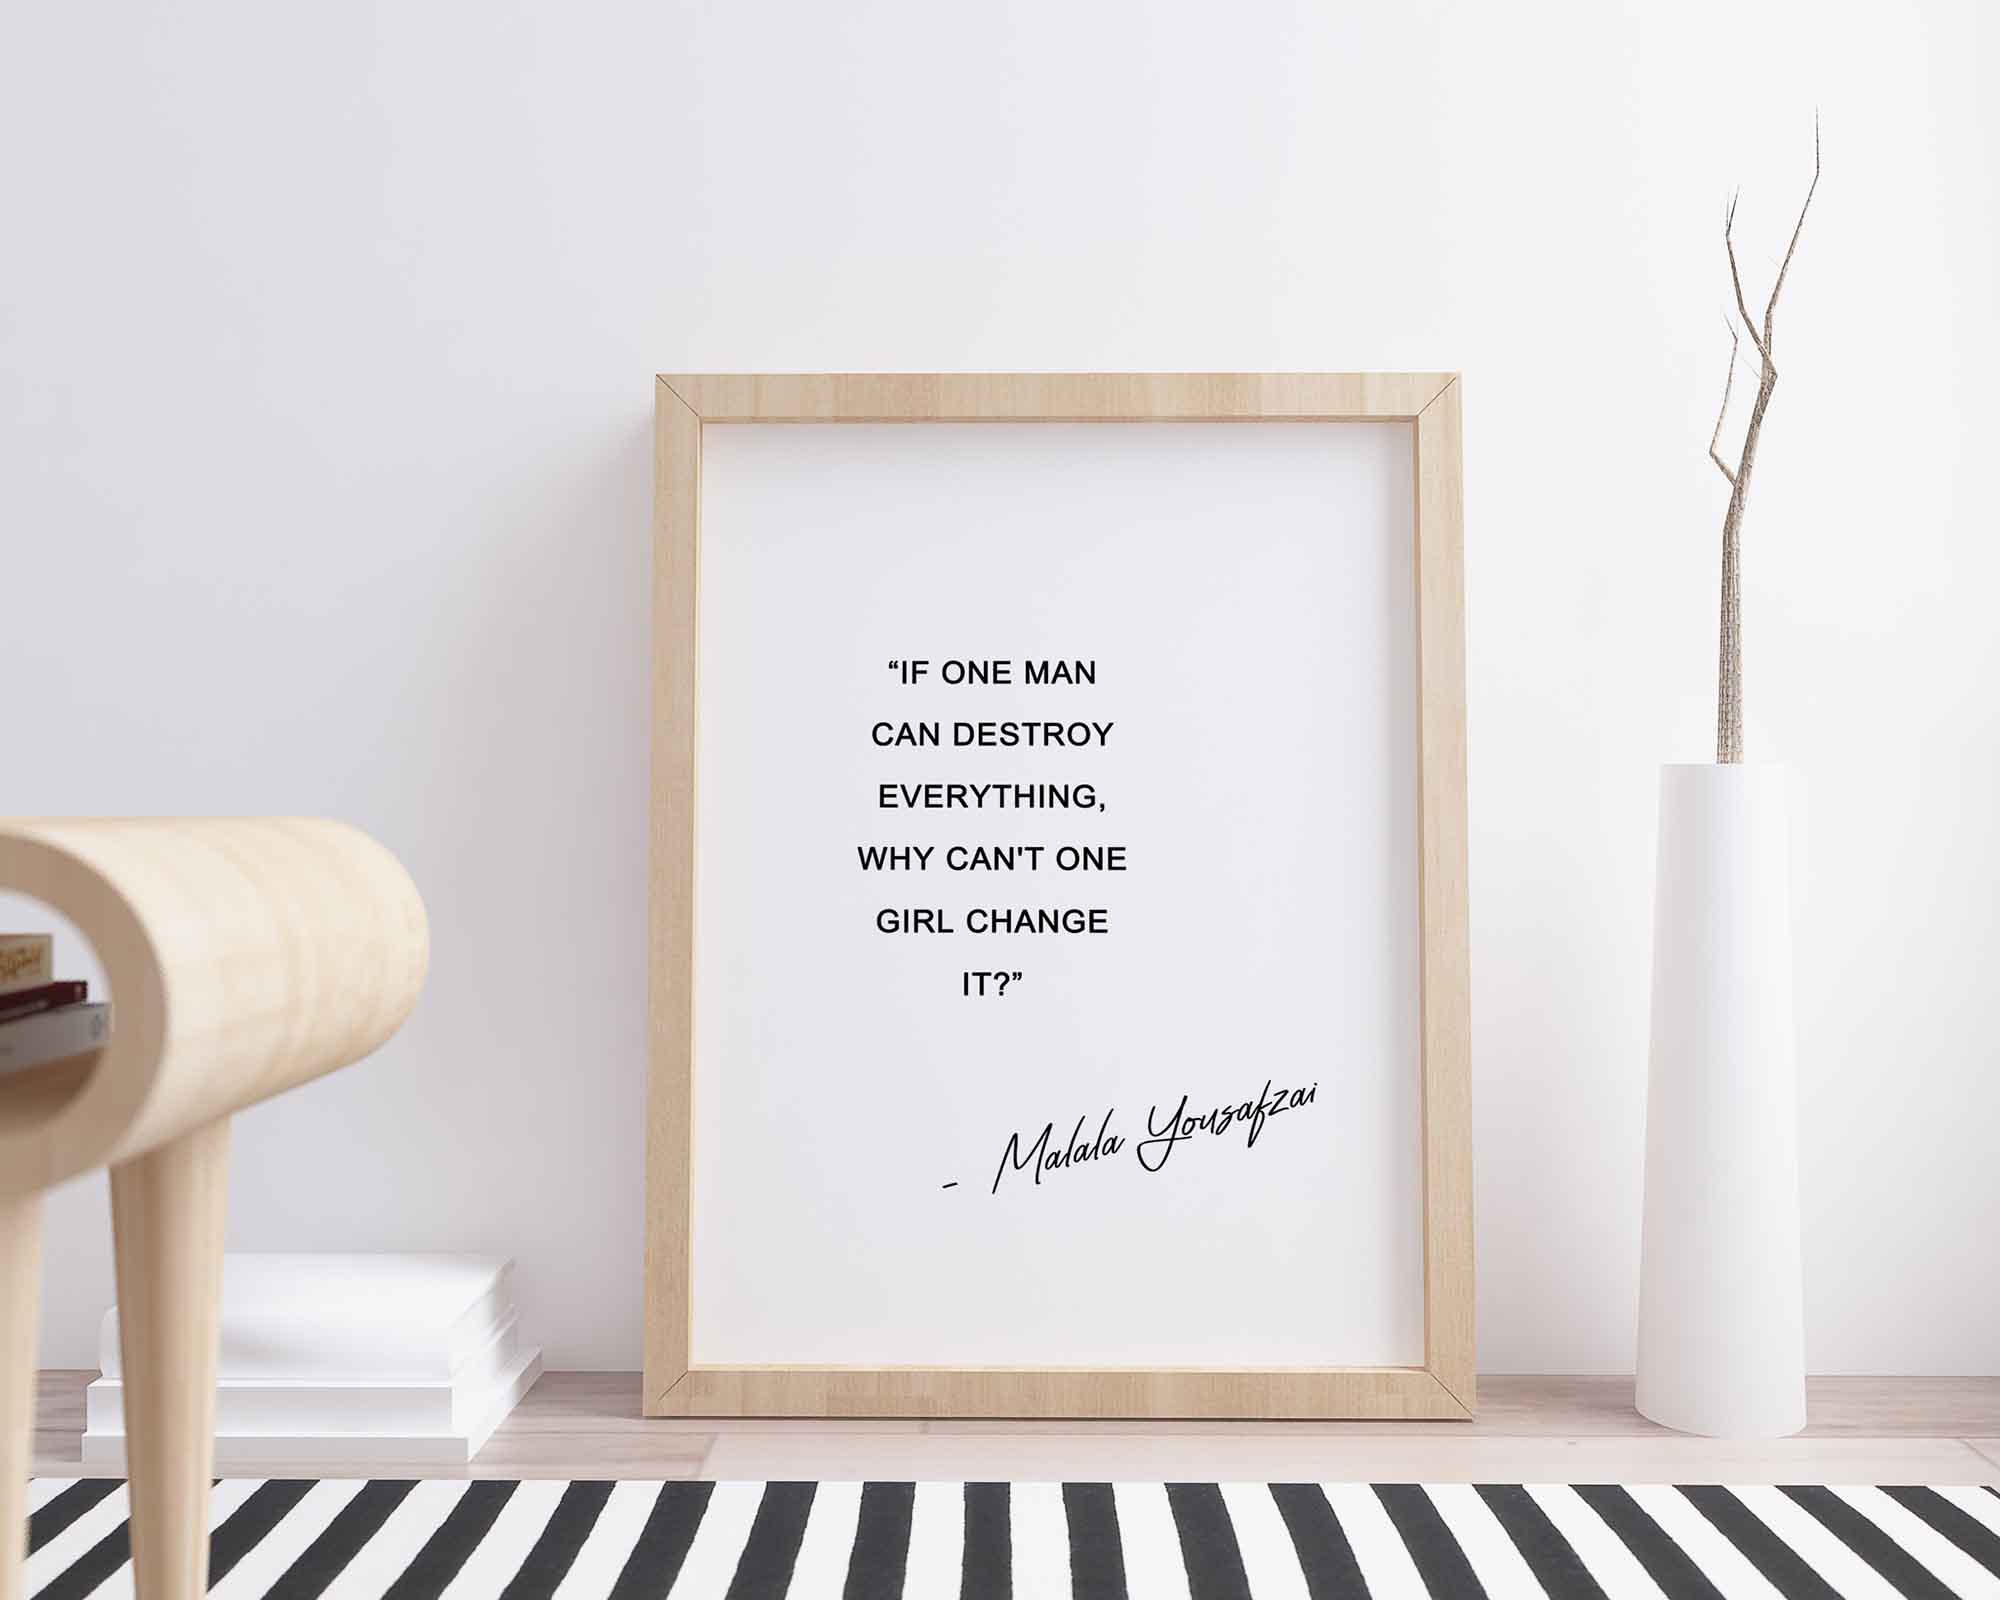 “IF ONE MAN
CAN DESTROY
EVERYTHING,
WHY CAN'T ONE
GIRL CHANGE
IT?”
- Malala Yousafzai